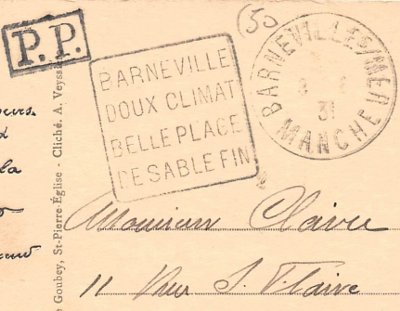 P.P.
50
BARNEVILLE
DOUX CLIMAT
BELLE PLACE
DE SABLE FIN
BARNEVILLE S/MER
31
MANCHE
Goubey, St-Pierre-Église - Cliché, A. Veyss
la
Monsieur Claire
11 Rue S. Flaive